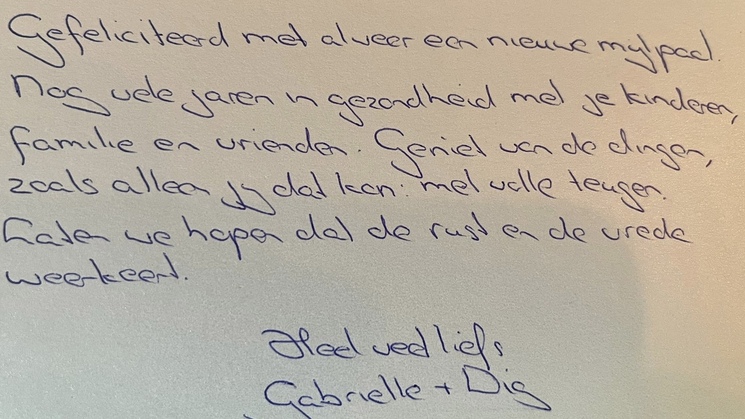 Gefeliciteerd met alweer een nieuwe mijlpaal.
Nog vele jaren in gezondheid met je kinderen,
familie en vrienden. Geniet van de dingen,
zoals alleen jij dat kan: met volle teugen.
Laten we hopen dat de rust en de vrede
weerkeert.
Heel veel liefs
Gabrielle + Dig